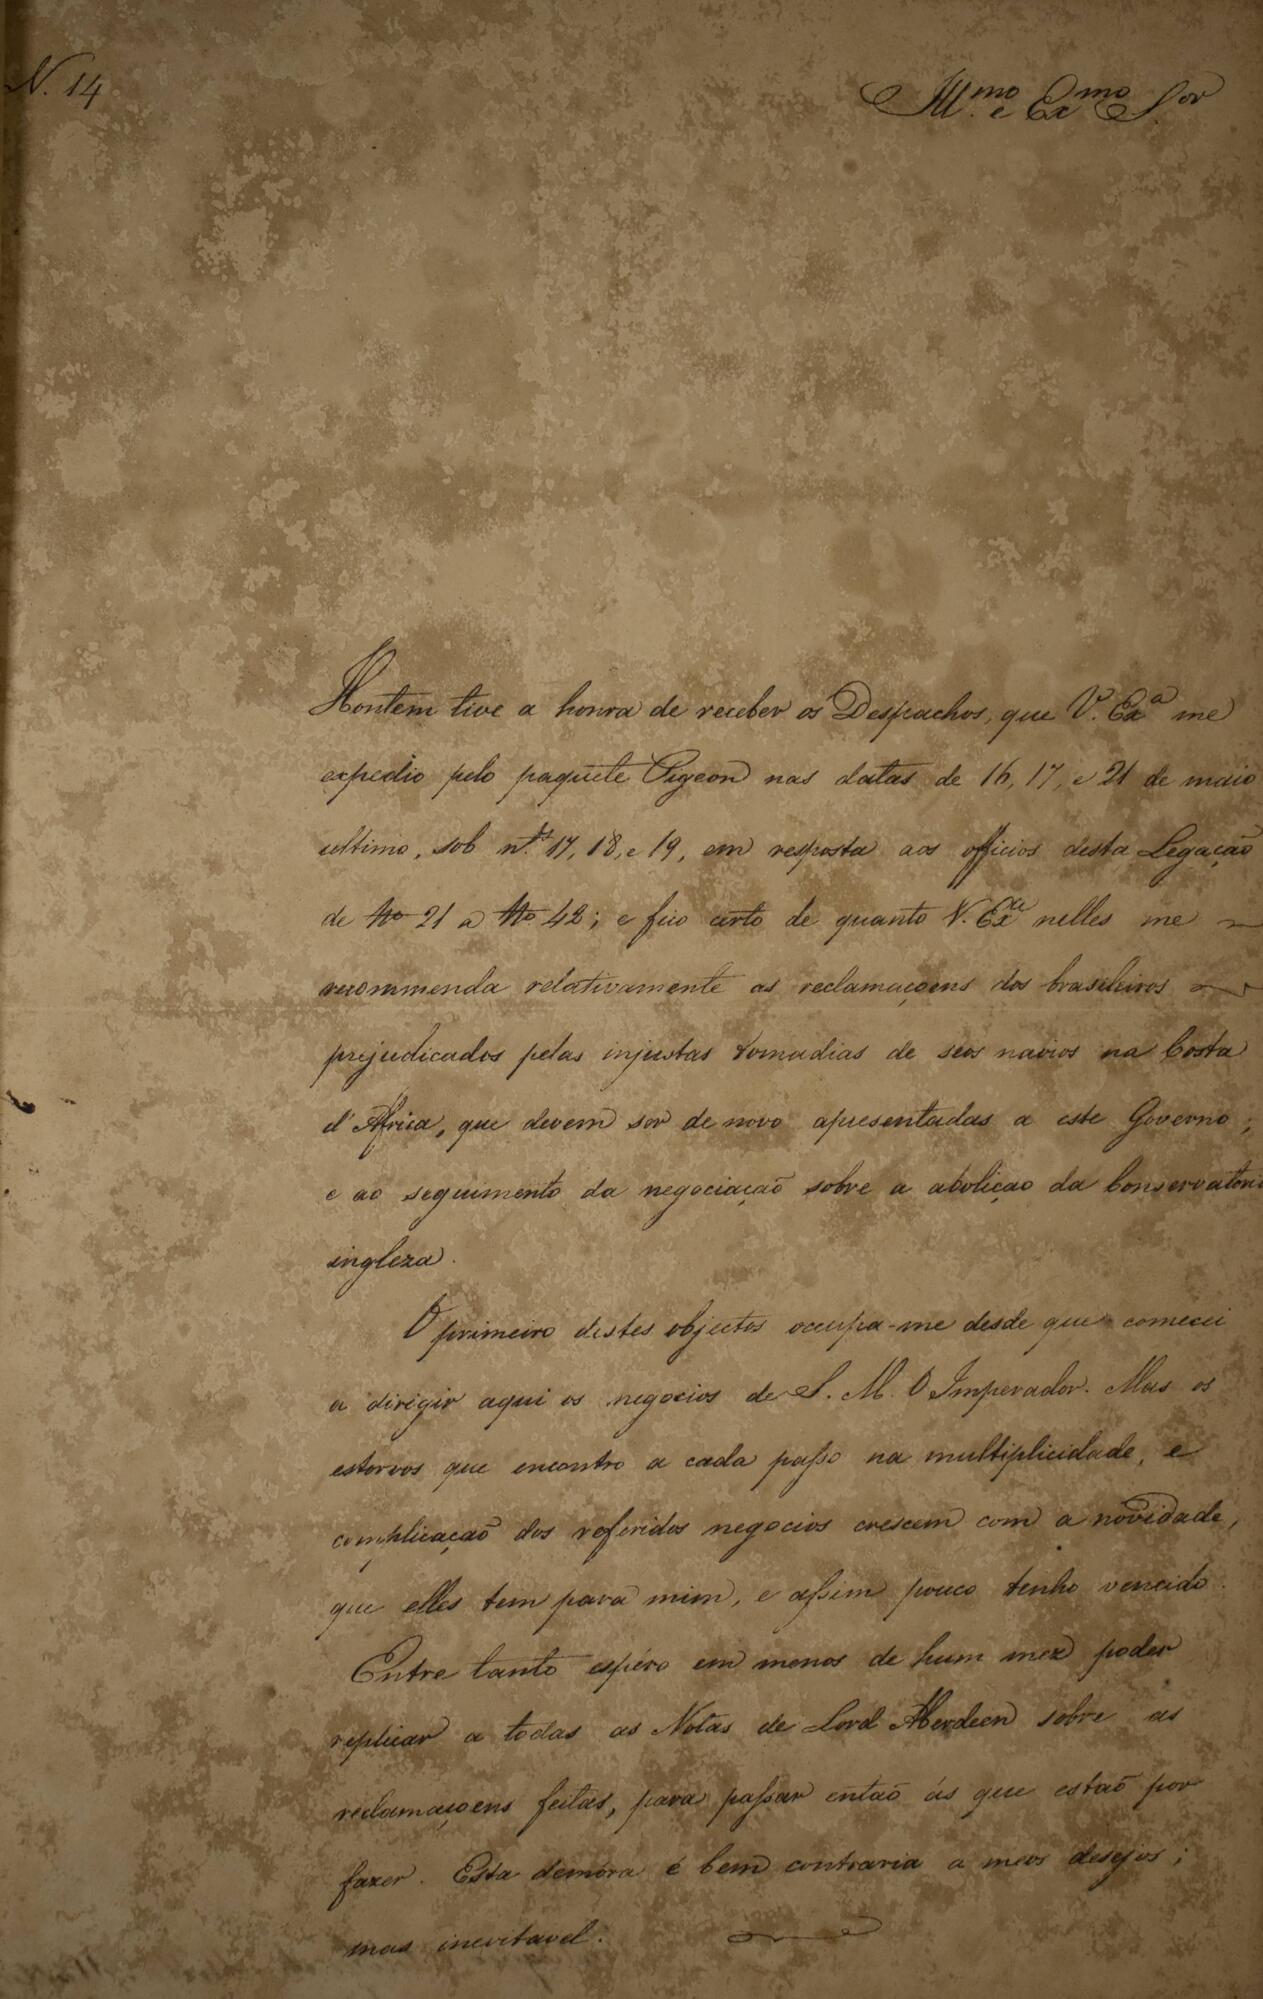 N. 14
Ill.mo e Exmo S.or
Hontem tive a honra de receber os Despachos, que V. Exa me
expedio pelo paquete Pigeon nas datas de 16, 17, e 21 de maio
ultimo, sob n.os 17, 18, e 19, em resposta aos officios desta Legação
de No 21 a No 42; e fico certo de quanto V. Exa nelles me
recommenda relativamente as reclamaçoens dos brasileiros
prejudicados pelas injustas tomadias de seos navios na Costa
d'Africa, que devem ser de novo apresentadas a este Governo;
e ao seguimento da negociação sobre a abolição da Conservatoria
ingleza.
O primeiro destes objectos occupa-me desde que comecei
a dirigir aqui os negocios de S. M. O Imperador. Mas os
estorvos que encontro a cada passo na multiplicidade, e
complicação dos referidos negocios crescem com a novidade,
que elles tem para mim, e assim pouco tenho vencido.
Entre tanto espéro em menos de hum mez poder
replicar a todas as Notas de Lord Aberdeen sobre as
reclamaçoens feitas, para passar então ás que estão por
fazer. Esta demóra é bem contraria a meos desejos;
mas inevitavel.